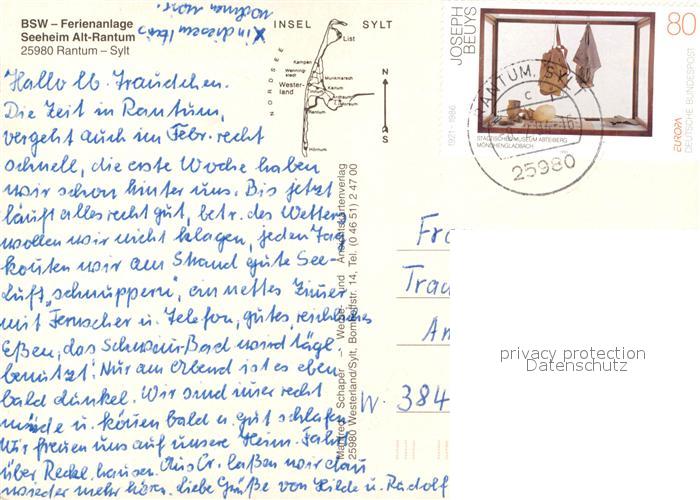 BSW – Ferienanlage
Seeheim Alt-Rantum
25980 Rantum – Sylt
x in diesem
wohnen wir.
INSEL SYLT
NORDSEE
List
Kampen
Wenning-
stedt
Wester-
land
Munkmarsch
Keitum
Morsum
Rantum
Hörnum
N
S
JOSEPH
BEUYS
1921 - 1986
80
STÄDTISCHES MUSEUM ABTEIBERG
MÖNCHENGLADBACH
EUROPA
DEUTSCHE BUNDESPOST
RANTUM, SYLT
c
25980
Hallo lb. Traudchen.
Die Zeit in Rantum,
vergeht auch im Febr. recht
schnell, die erste Woche haben
wir schon hinter uns. Bis jetzt
läuft alles recht gut, betr. des Wetters
wollen wir nicht klagen, jeden Tag
konten wir am Strand gute See-
luft "schnuppern", ein nettes Zimer
mit Fernseher u. Telefon, gutes reichliches
Eßen, das Schwimbad wird tägl.
benutzt. Nur am Abend ist es eben
bald dunkel. Wir sind imer recht
müde u. könen bald u. gut schlafen.
Wir freuen uns auf unsere Heim-Fahrt
über Reckl.hausen. Aus Cr. laßen wir dan
wieder mehr hören. Liebe Grüße von Hilde u. Rudolf
Manfred Schaper – Werbe- und Ansichtskartenverlag
25980 Westerland/Sylt, Bomhoffstr. 14, Tel. (0 46 51) 2 47 00
Fra
Trau
Am
W. 384
privacy protection
Datenschutz